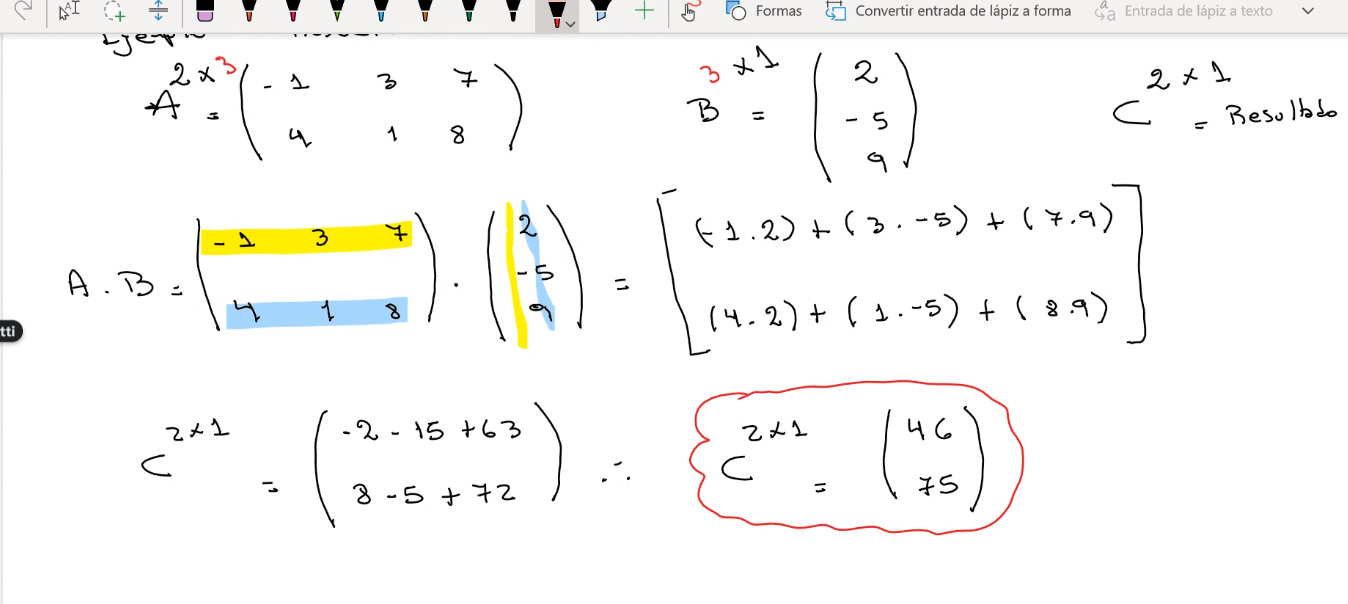 Formas Convertir entrada de lápiz a forma Entrada de lápiz a texto
A^{2×3} = ( -1 3 7
4 1 8 )
B^{3×1} = ( 2
-5
9 )
C^{2×1} = Resultado
A.B = ( -1 3 7
4 1 8 ) . ( 2
-5
9 ) = [ (-1.2) + (3.-5) + (7.9)
(4.2) + (1.-5) + (8.9) ]
tti
C^{2×1} = ( -2 - 15 + 63
8 - 5 + 72 ) ∴ C^{2×1} = ( 46
75 )